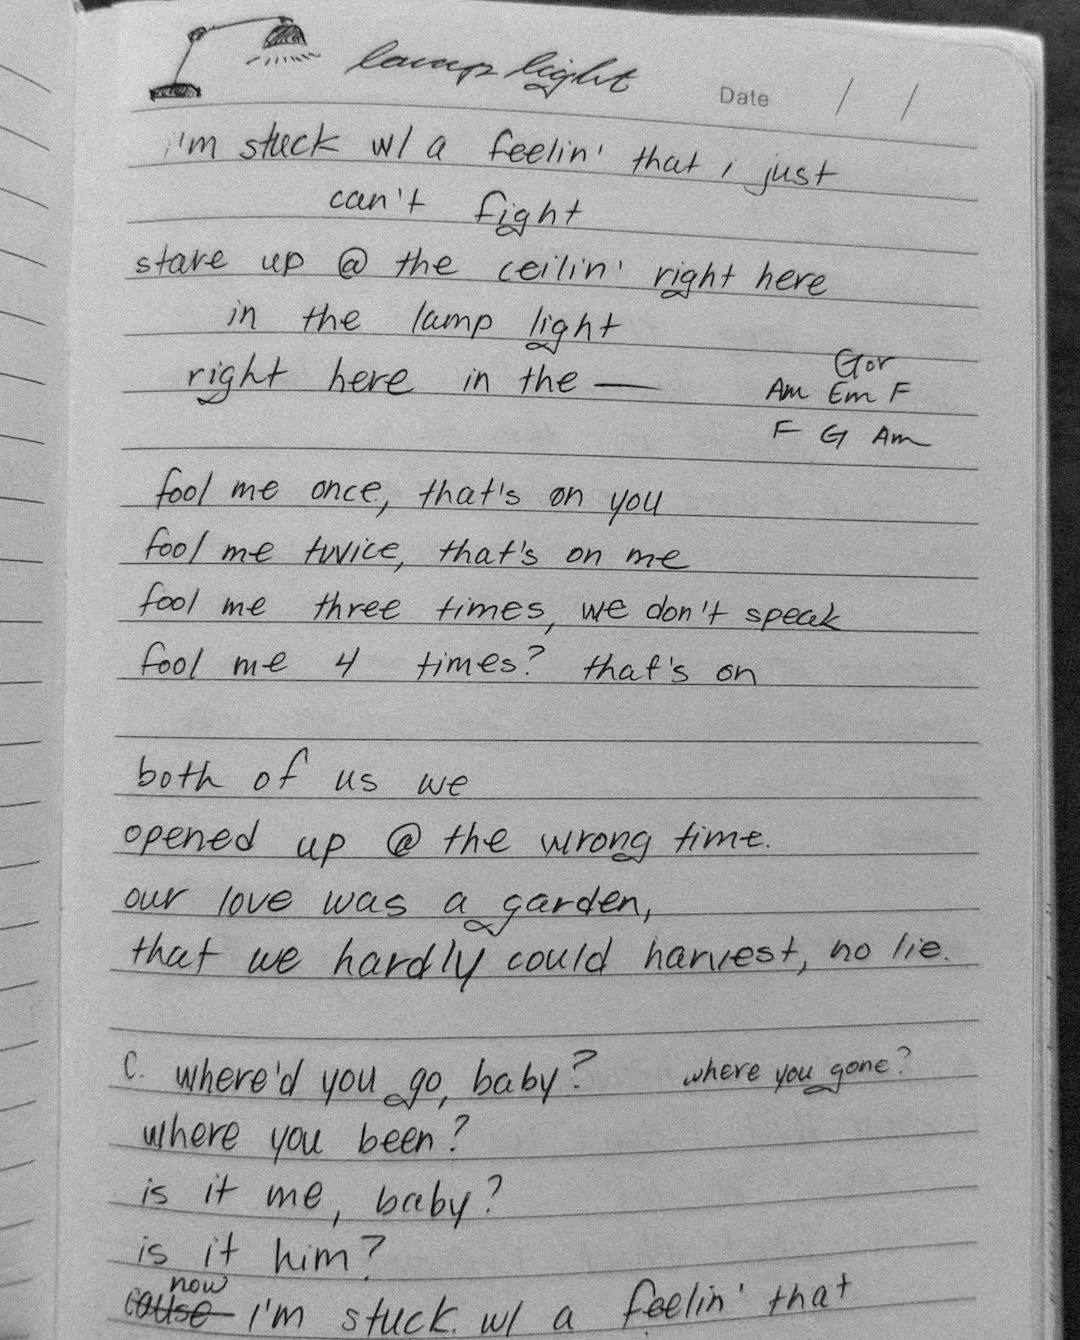 lamp light
Date / /
i'm stuck w/ a feelin' that i just
can't fight
stare up @ the ceilin' right here
in the lamp light
right here in the —
G or
Am Em F
F G Am
fool me once, that's on you
fool me twice, that's on me
fool me three times, we don't speak
fool me 4 times? that's on
both of us we
opened up @ the wrong time.
our love was a garden,
that we hardly could harvest, no lie.
C. where'd you go, baby? where you gone?
where you been?
is it me, baby?
is it him?
now
cause I'm stuck w/ a feelin' that